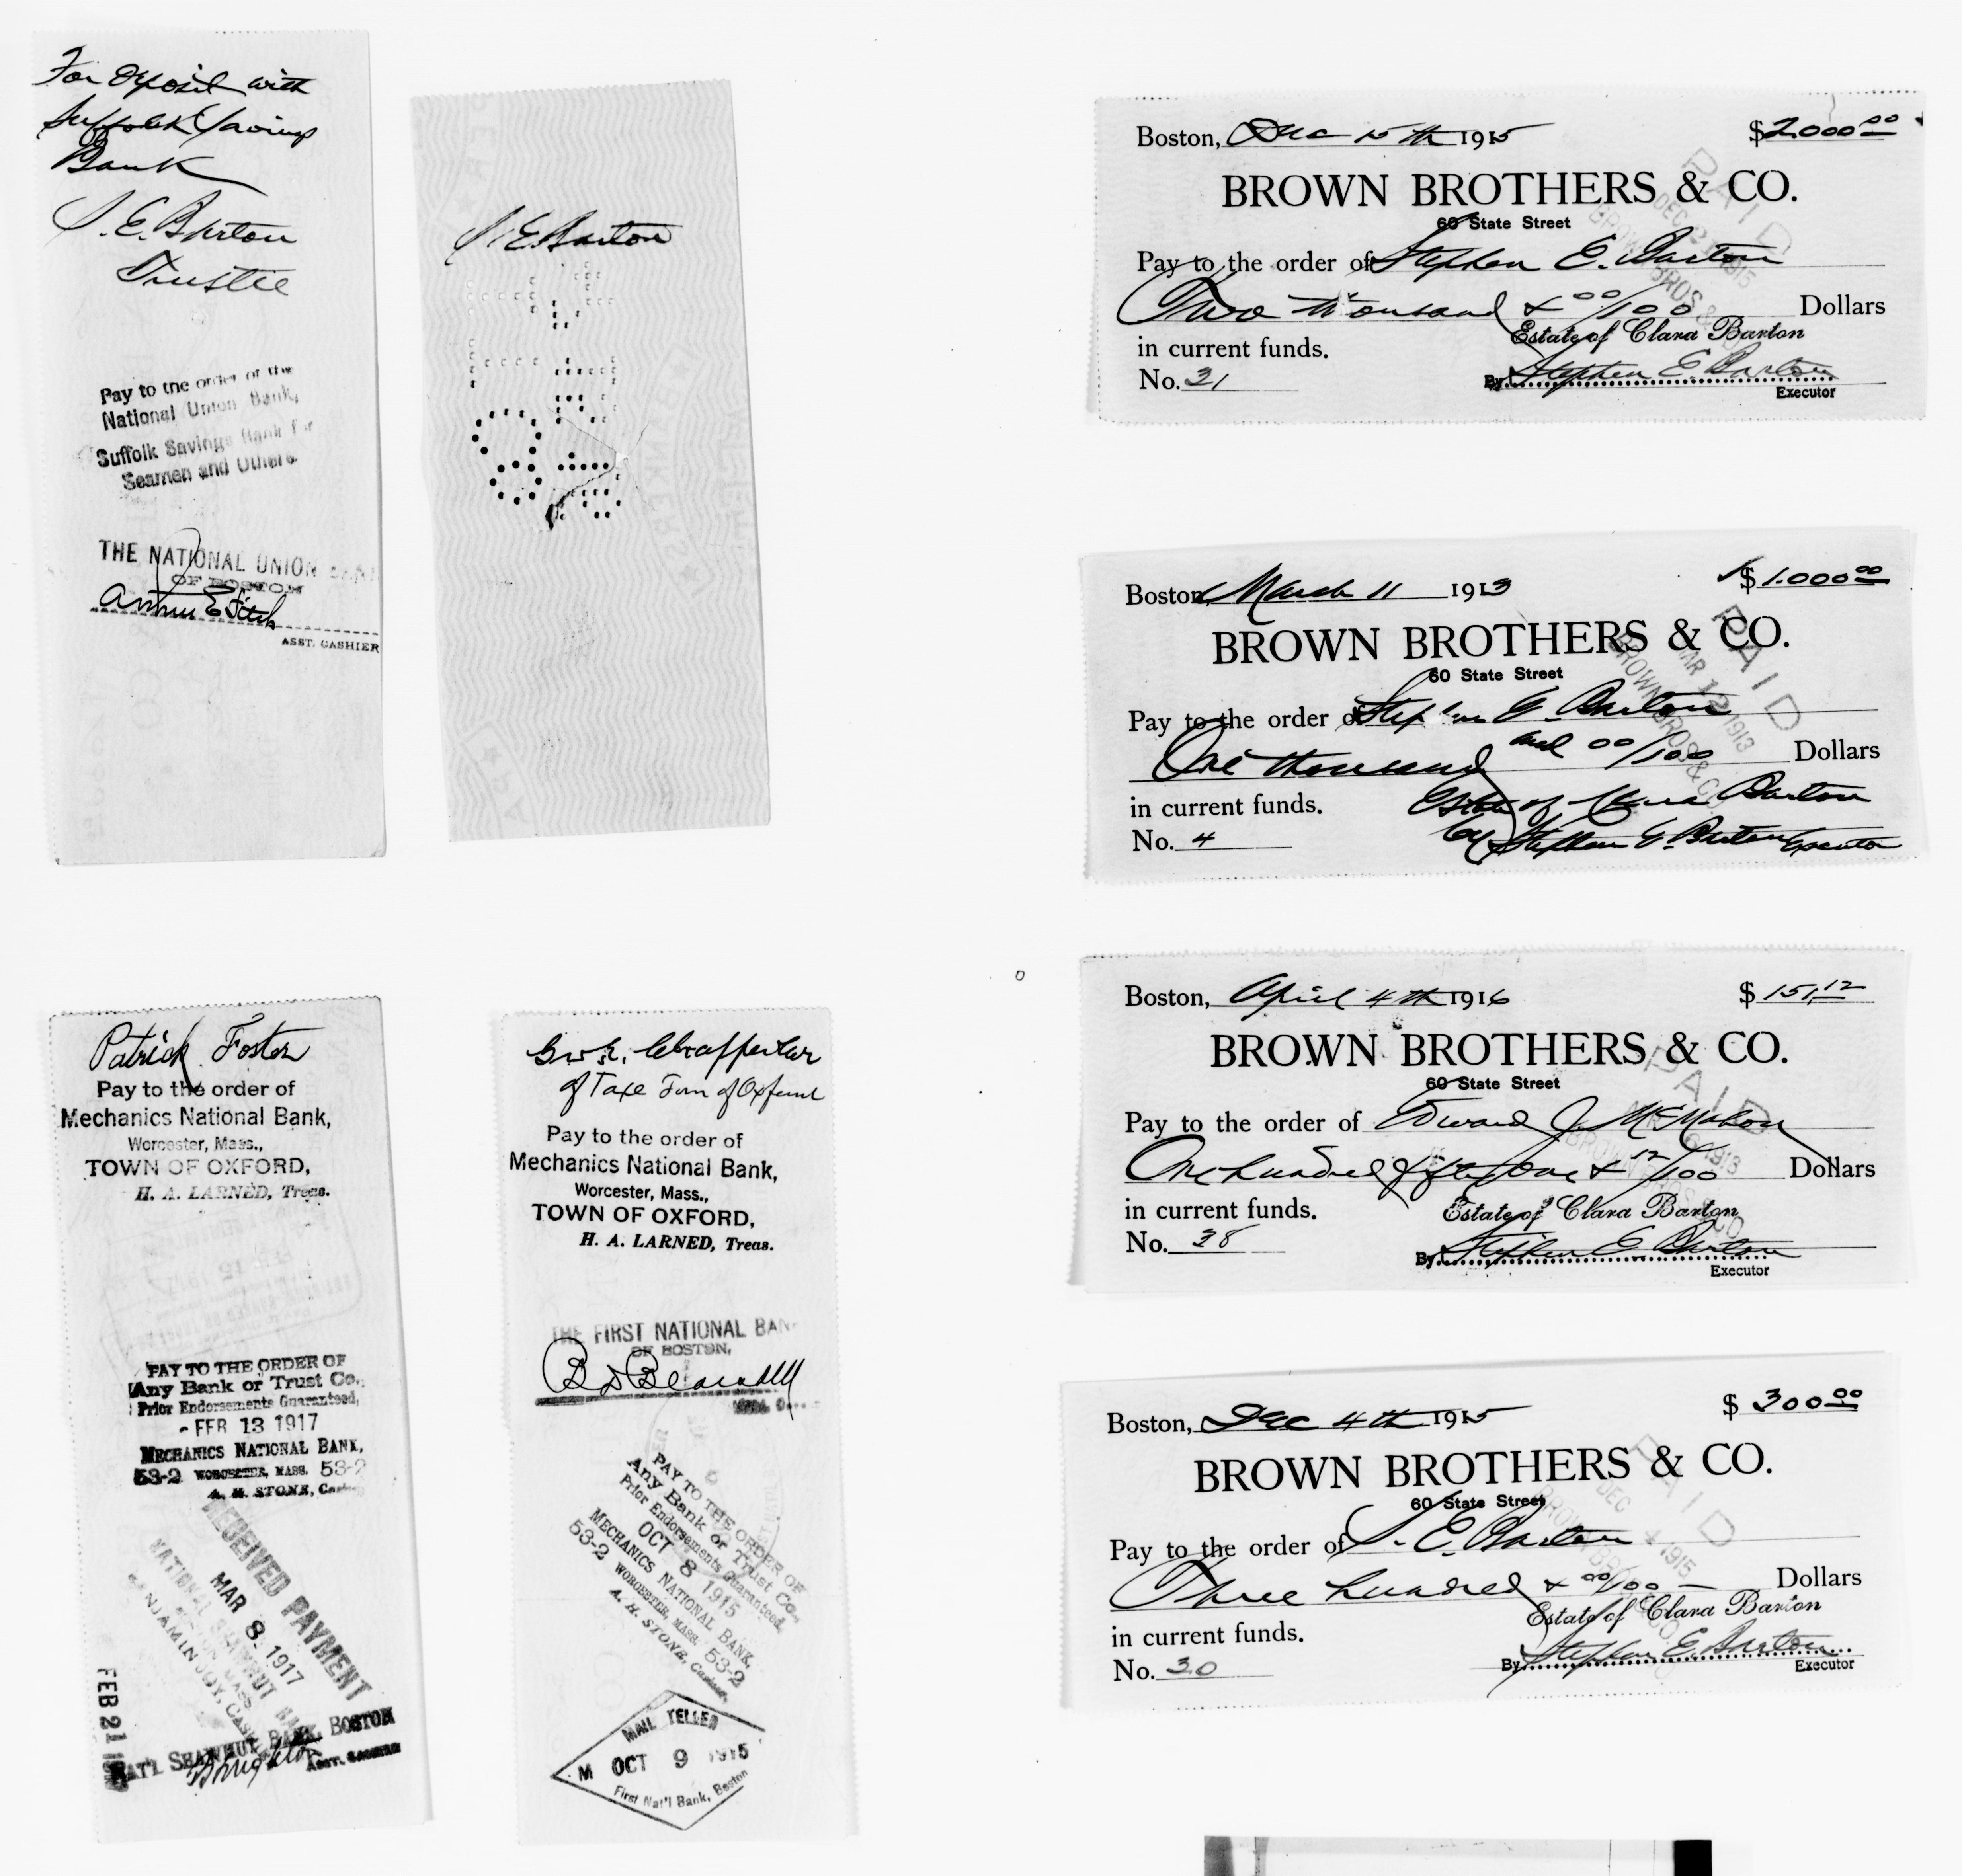 For Deposit with
Suffolk Savings
Bank
S. E. Barton
Trustee
Pay to the order of the
National Union Bank,
Suffolk Savings Bank for
Seamen and Others.
THE NATIONAL UNION BANK
OF BOSTON
Arthur E Fitch
ASST. CASHIER
S. E. Barton
Patrick Foster
Pay to the order of
Mechanics National Bank,
Worcester, Mass.,
TOWN OF OXFORD,
H. A. LARNED, Treas.
PAY TO THE ORDER OF
Any Bank or Trust Co.,
Prior Endorsements Guaranteed,
FEB 13 1917
MECHANICS NATIONAL BANK,
53-2 WORCESTER, MASS. 53-2
A. H. STONE, Cashier
RECEIVED PAYMENT
MAR 8 1917
NATIONAL SHAWMUT BANK
BENJAMIN JOY, CASHIER
FEB 21
NAT'L SHAWMUT BANK, BOSTON
ASST. CASHIER
of Taxe Town of Oxford
Pay to the order of
Mechanics National Bank,
Worcester, Mass.,
TOWN OF OXFORD,
H. A. LARNED, Treas.
THE FIRST NATIONAL BANK
OF BOSTON,
PAY TO THE ORDER OF
Any Bank or Trust Co.,
Prior Endorsements Guaranteed,
OCT 8 1915
MECHANICS NATIONAL BANK,
53-2 WORCESTER, MASS. 53-2
A. H. STONE, Cashier
MAIL TELLER
M OCT 9 1915
First Nat'l Bank, Boston
Boston, Dec 15th 1915 $2000 00
BROWN BROTHERS & CO.
60 State Street
Pay to the order of Stephen E. Barton
Two thousand & 00/100 Dollars
Estate of Clara Barton
in current funds.
No. 31 By Stephen E Barton
Executor
PAID
DEC 1915
BROWN BROS & CO
Boston, March 11 1913 $1.000 00
BROWN BROTHERS & CO.
60 State Street
Pay to the order of Stephen E. Barton
One thousand and 00/100 Dollars
in current funds. Estate of Clara Barton
No. 4 by Stephen E. Barton Executor
PAID
MAR 12 1913
BROWN BROS & CO
Boston, April 4th 1916 $151.12
BROWN BROTHERS & CO.
60 State Street
Pay to the order of Edward J. McMahon
One hundred fifty one & 12/100 Dollars
in current funds. Estate of Clara Barton
No. 38 By Stephen E Barton
Executor
PAID
Boston, Dec 4th 1915 $300 00
BROWN BROTHERS & CO.
60 State Street
Pay to the order of S. E. Barton
Three hundred & 00/100 Dollars
Estate of Clara Barton
in current funds.
No. 30 By Stephen E. Barton
Executor
PAID
DEC 4 1915